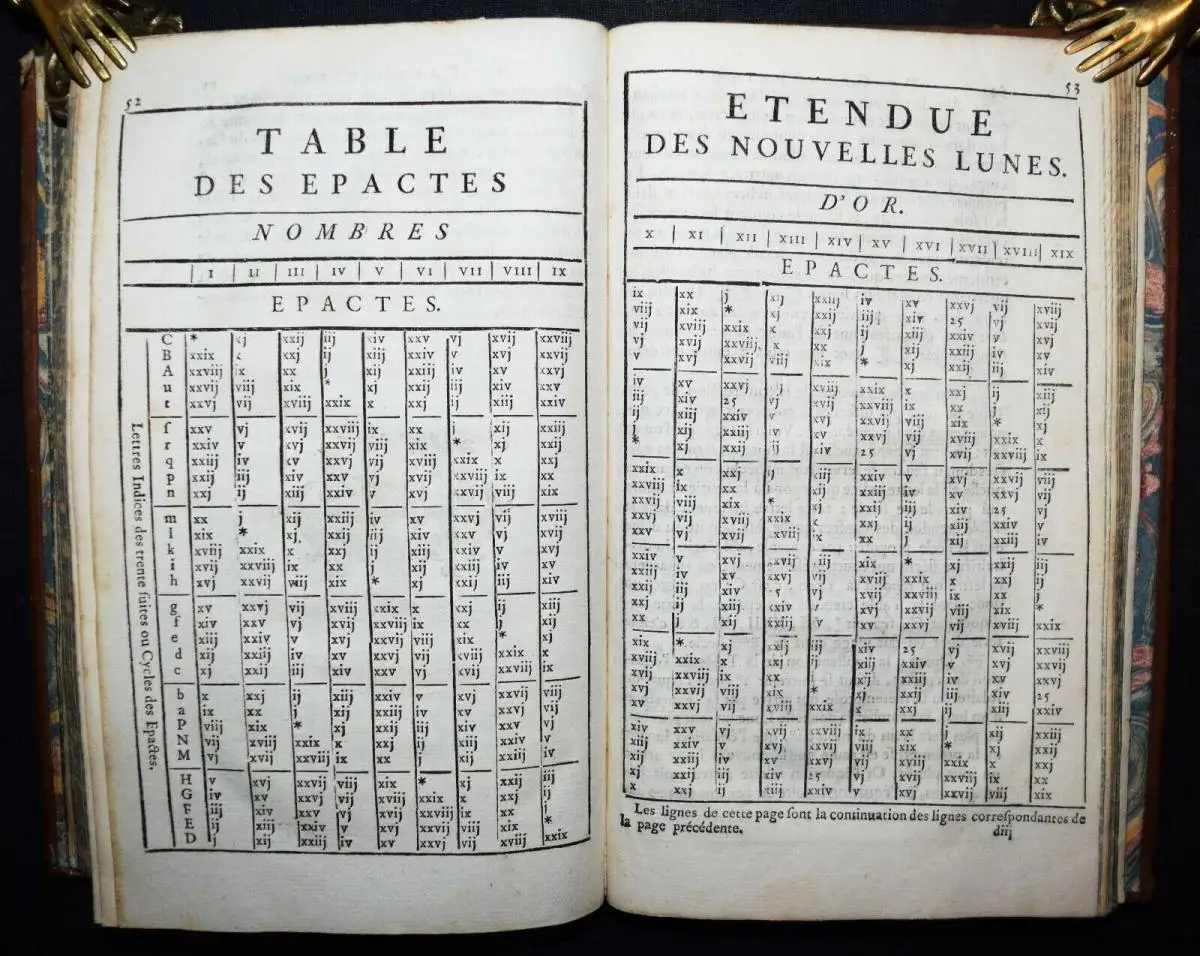 52
TABLE
DES EPACTES
NOMBRES
I II III IV V VI VII VIII IX
EPACTES.
Lettres Indices des trente suites ou Cycles des Epactes.
C * xj xxij iij xiv xxv vj xvij xxviij
B xxix x xxj ij xiij xxiv v xvj xxvij
A xxviij ix xx j xij xxiij iv xv xxvj
u xxvij viij xix * xj xxij iij xiv xxv
t xxvj vij xviij xxix x xxj ij xiij xxiv
ſ xxv vj xvij xxviij ix xx j xij xxiij
r xxiv v xvj xxvij viij xix * xj xxij
q xxiij iv xv xxvj vij xviij xxix x xxj
p xxij iij xiv xxv vj xvij xxviij ix xx
n xxj ij xiij xxiv v xvj xxvij viij xix
m xx j xij xxiij iv xv xxvj vij xviij
l xix * xj xxij iij xiv xxv vj xvij
k xviij xxix x xxj ij xiij xxiv v xvj
i xvij xxviij ix xx j xij xxiij iv xv
h xvj xxvij viij xix * xj xxij iij xiv
g xv xxvj vij xviij xxix x xxj ij xiij
f xiv xxv vj xvij xxviij ix xx j xij
e xiij xxiv v xvj xxvij viij xix * xj
d xij xxiij iv xv xxvj vij xviij xxix x
c xj xxij iij xiv xxv vj xvij xxviij ix
b x xxj ij xiij xxiv v xvj xxvij viij
a ix xx j xij xxiij iv xv xxvj vij
P viij xix * xj xxij iij xiv xxv vj
N vij xviij xxix x xxj ij xiij xxiv v
M vj xvij xxviij ix xx j xij xxiij iv
H v xvj xxvij viij xix * xj xxij iij
G iv xv xxvj vij xviij xxix x xxj ij
F iij xiv xxv vj xvij xxviij ix xx j
E ij xiij xxiv v xvj xxvij viij xix *
D j xij xxiij iv xv xxvj vij xviij xxix
53
ETENDUE
DES NOUVELLES LUNES.
D'OR.
X XI XII XIII XIV XV XVI XVII XVIII XIX
EPACTES.
ix xx j xij xxiij iv xv xxvj vij xviij
viij xix * xj xxij iij xiv 25 vj xvij
vij xviij xxix x xxj ij xiij xxiv v xvj
vj xvij xxviij ix xx j xij xxiij iv xv
v xvj xxvij viij xix * xj xxij iij xiv
iv xv xxvj vij xviij xxix x xxj ij xiij
iij xiv 25 vj xvij xxviij ix xx j xij
ij xiij xxiv v xvj xxvij viij xix * xj
j xij xxiij iv xv xxvj vij xviij xxix x
* xj xxij iij xiv 25 vj xvij xxviij ix
xxix x xxj ij xiij xxiv v xvj xxvij viij
xxviij ix xx j xij xxiij iv xv xxvj vij
xxvij viij xix * xj xxij iij xiv 25 vj
xxvj vij xviij xxix x xxj ij xiij xxiv v
xxv vj xvij xxviij ix xx j xij xxiij iv
xxiv v xvj xxvij viij xix * xj xxij iij
xxiij iv xv xxvj vij xviij xxix x xxj ij
xxij iij xiv 25 vj xvij xxviij ix xx j
xxj ij xiij xxiv v xvj xxvij viij xix *
xx j xij xxiij iv xv xxvj vij xviij xxix
xix * xj xxij iij xiv 25 vj xvij xxviij
xviij xxix x xxj ij xiij xxiv v xvj xxvij
xvij xxviij ix xx j xij xxiij iv xv xxvj
xvj xxvij viij xix * xj xxij iij xiv 25
xv xxvj vij xviij xxix x xxj ij xiij xxiv
xiv xxv vj xvij xxviij ix xx j xij xxiij
xiij xxiv v xvj xxvij viij xix * xj xxij
xij xxiij iv xv xxvj vij xviij xxix x xxj
xj xxij iij xiv 25 vj xvij xxviij ix xx
x xxj ij xiij xxiv v xvj xxvij viij xix
Les lignes de cette page ſont la continuation des lignes correſpondantes de
la page précédente.
diij